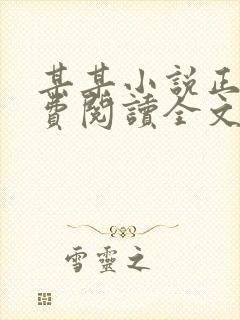 甚甚小說正
費閱讀全文
雪靈之